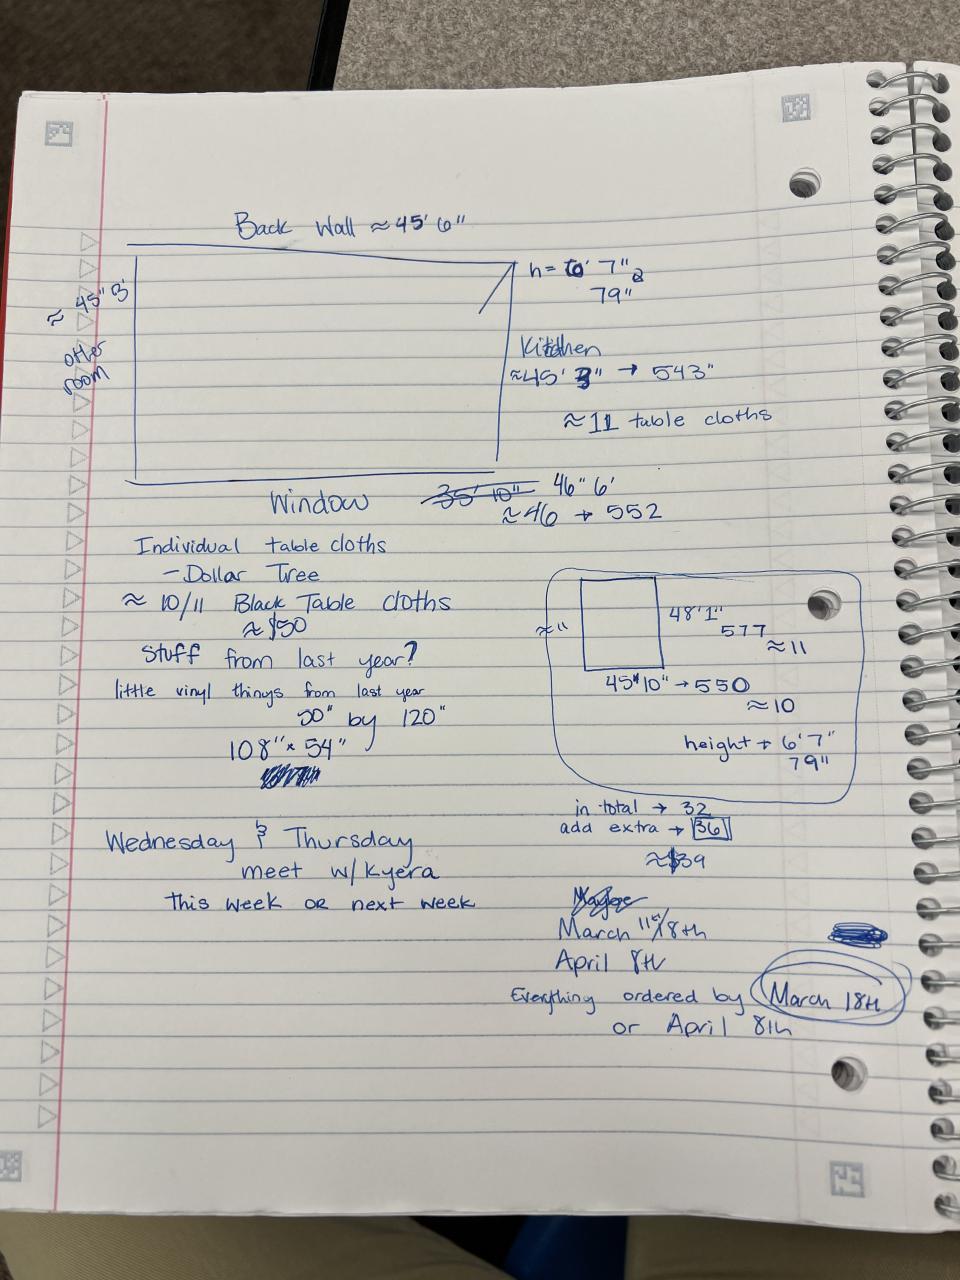 Back Wall ≈ 45' 6"
≈ 45" 3'
other
room
h = 6' 7"
79"
Kitchen
≈45' 3" → 543"
≈ 11 table cloths
Window
35' 10"
46" 6'
≈46 → 552
Individual table cloths
- Dollar Tree
≈ 10/11 Black Table cloths
≈ $50
Stuff from last year?
little vinyl things from last year
50" by 120"
108" x 54"
Wednesday & Thursday
meet w/ Kyera
this week OR next week
≈ 11
48'1"
577
≈ 11
45" 10" → 550
≈ 10
height → 6' 7"
79"
in total → 32
add extra → 36
≈ $39
March 11th/18th
April 8th
Everything ordered by March 18th
or April 8th